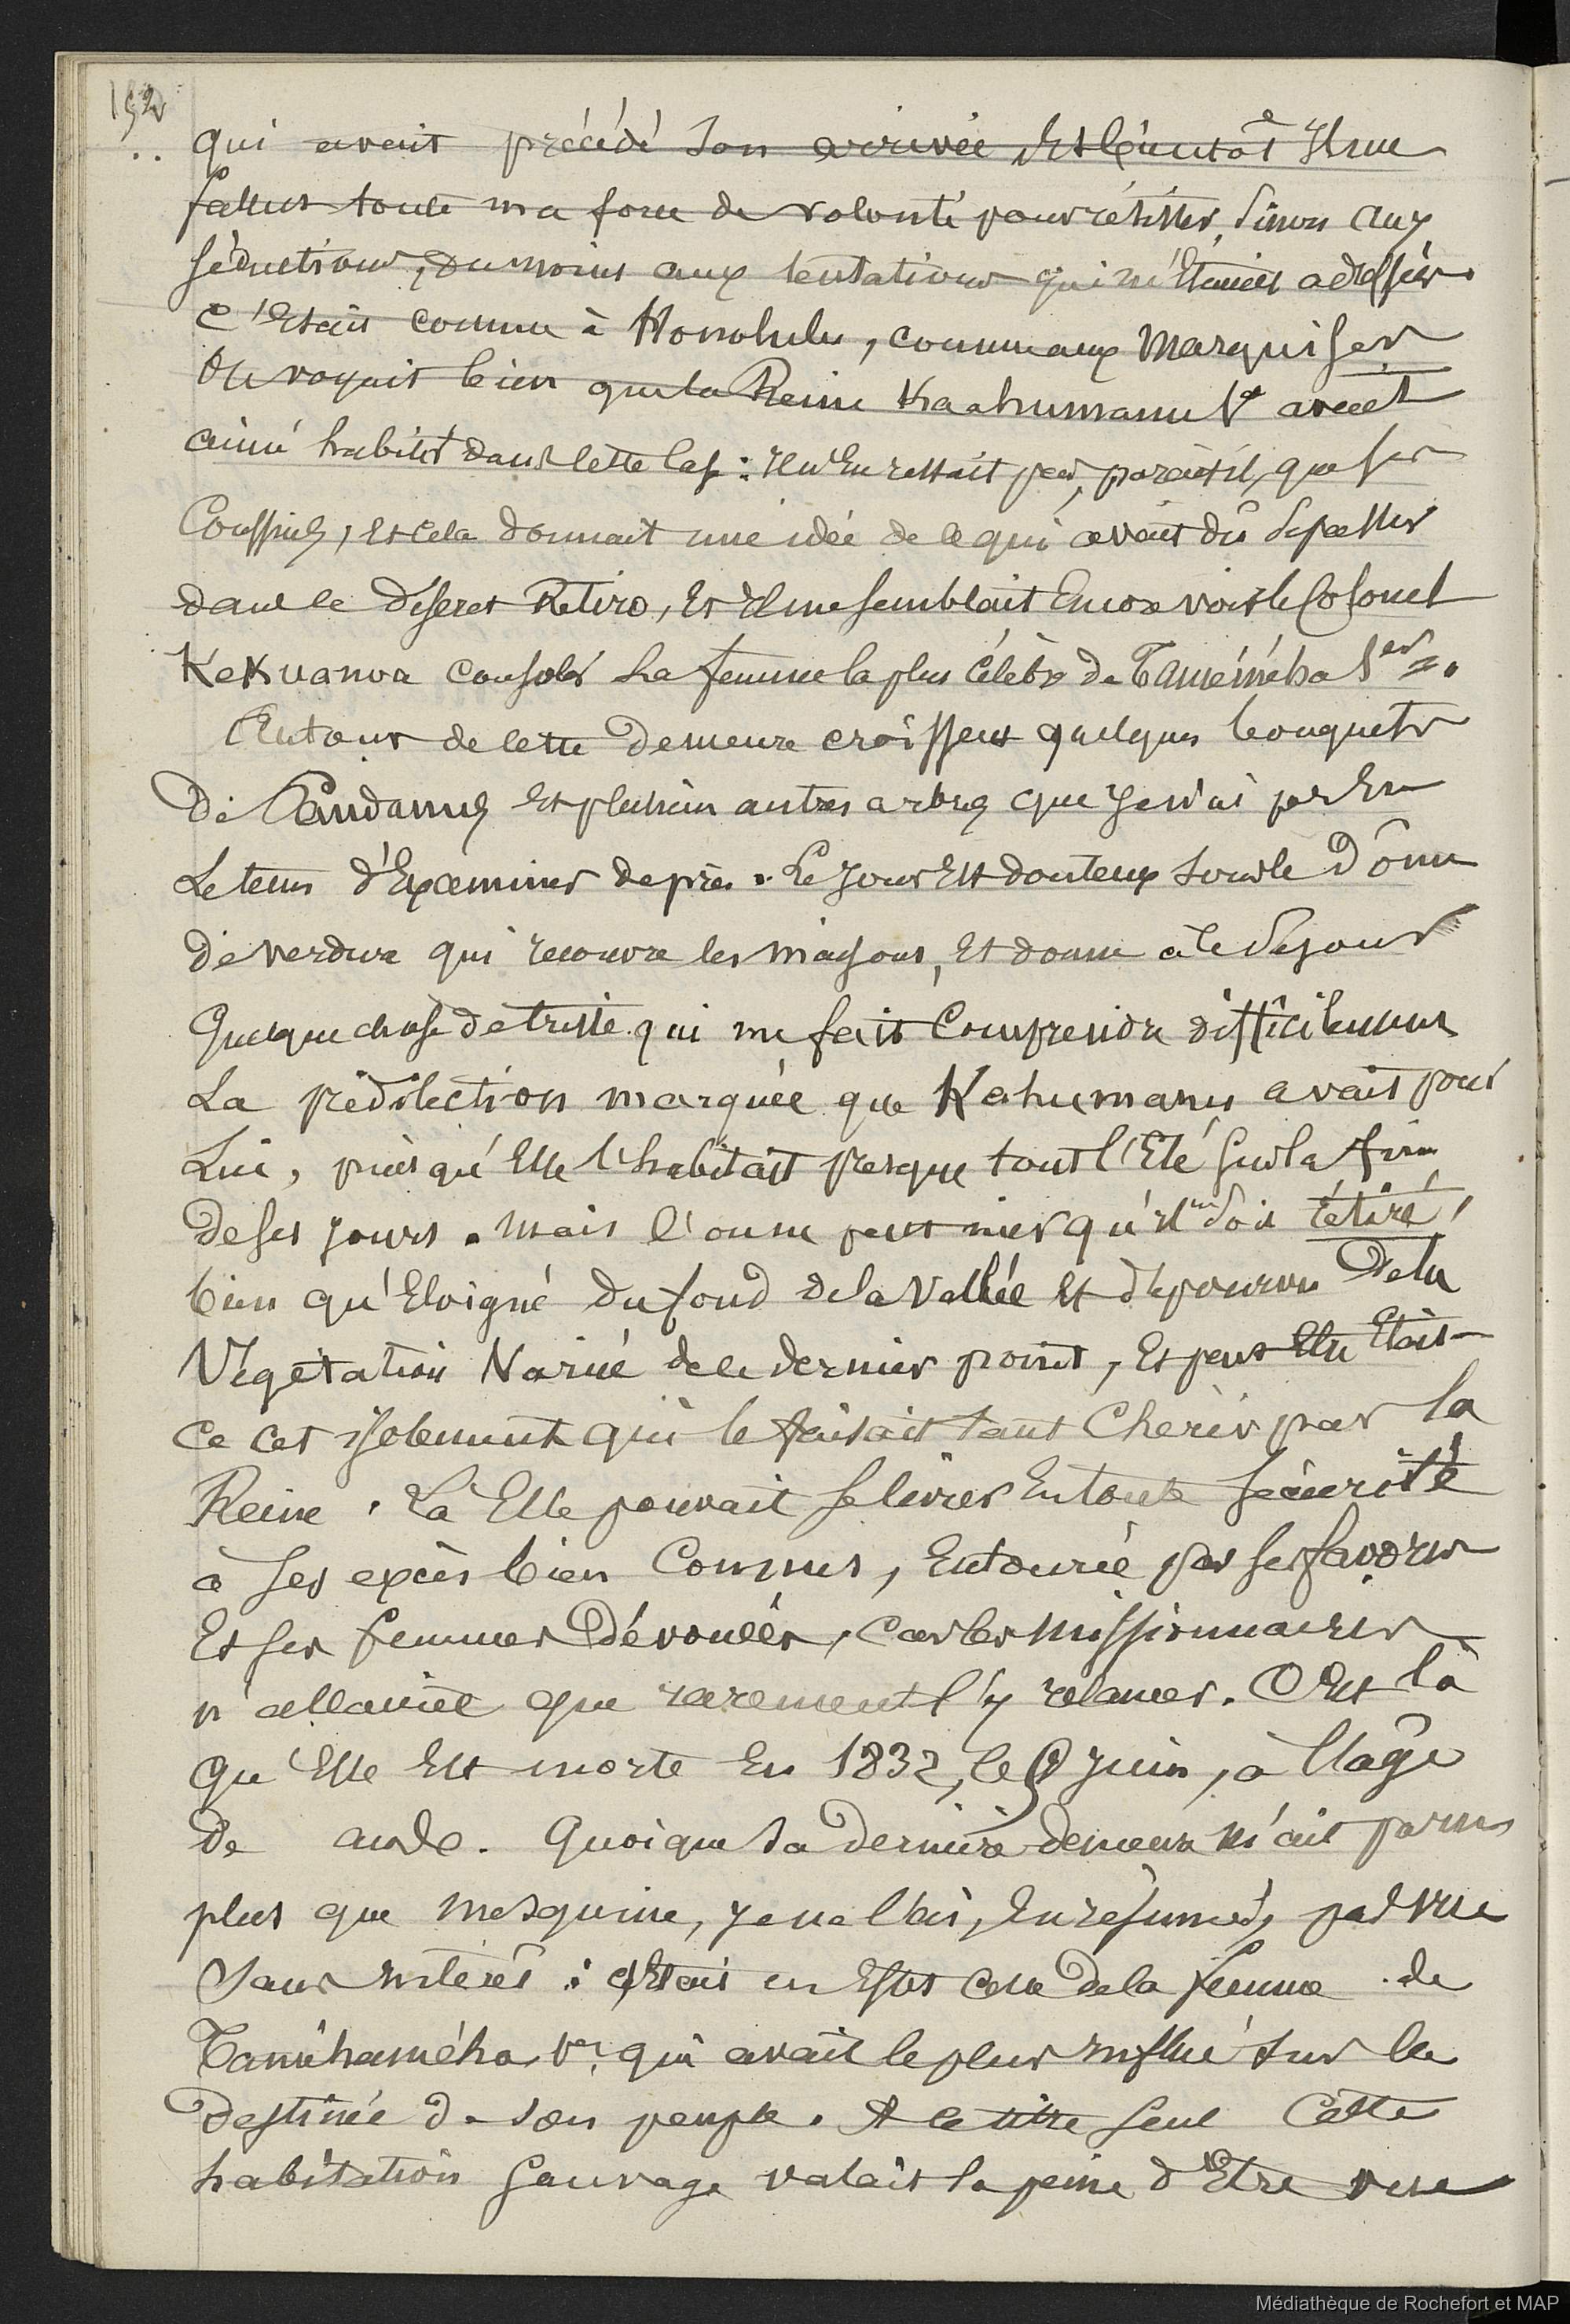 152
qui avait précédé son arrivée, et bientôt Il me
fallut toute ma force de volonté pour résister, sinon aux
séductions, du moins aux tentations qui m'étaient adressées.
C'était comme à Honolulu, comme aux Marquises
On voyait bien que la Reine Kaahumanu avait
aimé habiter dans cette case : Il n'en restait parait-il, que ses
Coussins, et cela donnait une idée de ce qui avait dû se passer
dans ce discret Retiro, Et Il me semblait encore voir le Colonel
Kekuanoa consoler la femme la plus célèbre de Taméméha 1er.
Autour de cette demeure croissent quelques bouquets
De Pandanus et plusieurs autres arbres que je n'ai pas eu
Le tems d'Examiner de près. Le jour est douteux sous le Dôme
de verdure qui recouvre les maisons, Et donne à ce séjour
Quelque chose de triste qui me fait Comprendre difficilement
La prédilection marquée que Kahumanu avait pour
Lui, puisqu'Elle l'habitait presque tout l'Eté sur la fin
De ses jours. Mais l'on ne peut nier qu'il ne soit rétiré,
bien qu'Eloigné du fond de la vallée et dépourvu de la
Végétation Variée de ce dernier point, Et peut Etre Etait-
ce cet isolement qui le faisait tant Chérir par la
Reine. Là Elle pouvait se livrer En toute sécurité
à ses excès bien Connus, Entourée par ses favoris
Et ses femmes Dévouées, Car les Missionnaires
n'allaient que rarement l'y relancer. C'Est là
qu'Elle Est morte En 1832, le 5 Juin, à l'âge
De ans. Quoique sa dernière demeure m'ait parue
plus que mesquine, je ne l'ai, En résumé, pas vue
Sans intérêt : c'Etait en Effet celle de la femme de
Taméhaméha 1er qui avait le plus influé sur la
Destinée de son peuple. A ce titre seul Cette
habitation sauvage valait la peine d'Etre vue
Médiathèque de Rochefort et MAP